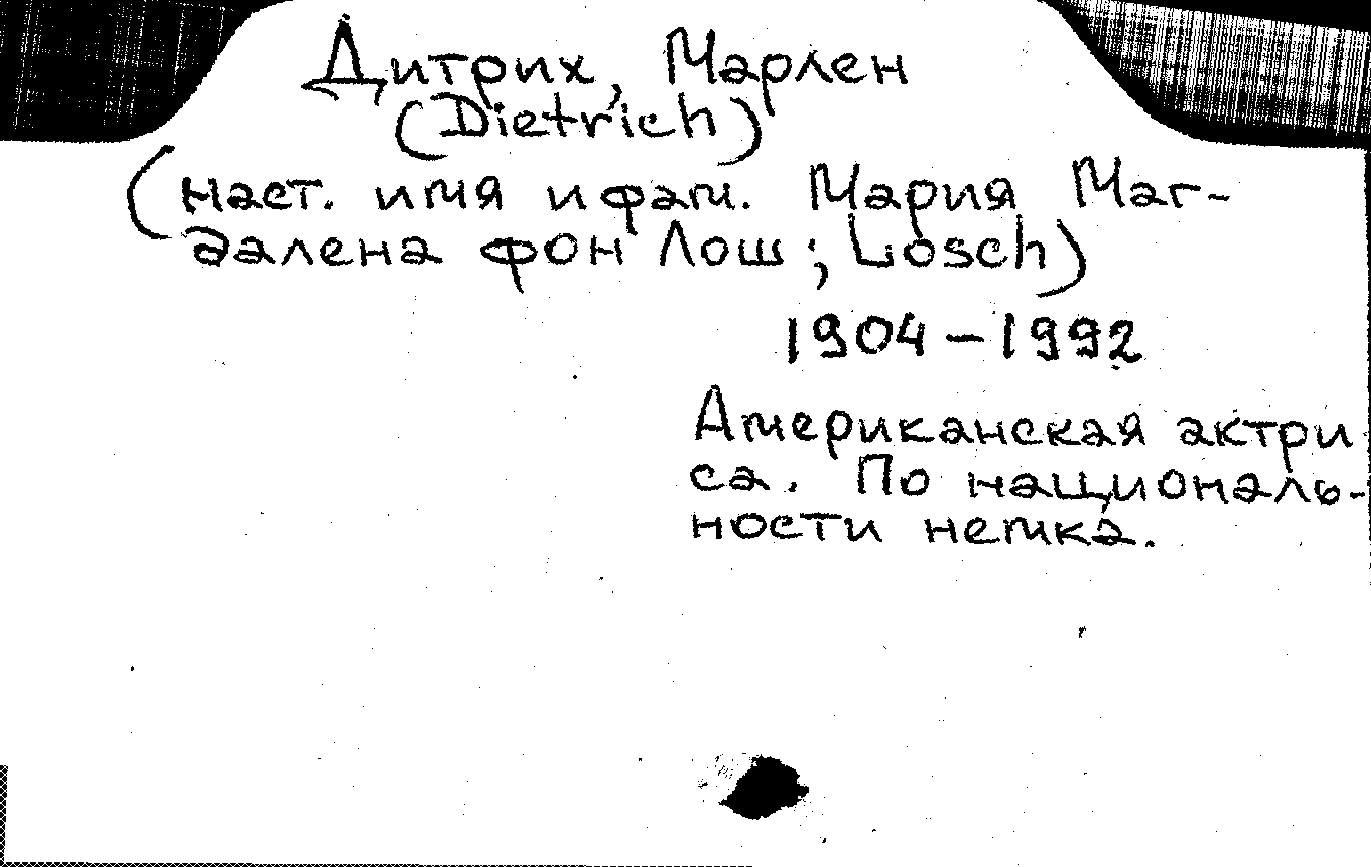 Дитрих, Марлен
(Dietrich)
(наст. имя и фам. Мария Маг-
далена фон Лош; Losch)
1904–1992
Американская актри
са. По националь-
ности немка.